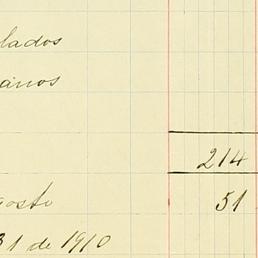 lados
anos
214
gosto 51
31 de 1910